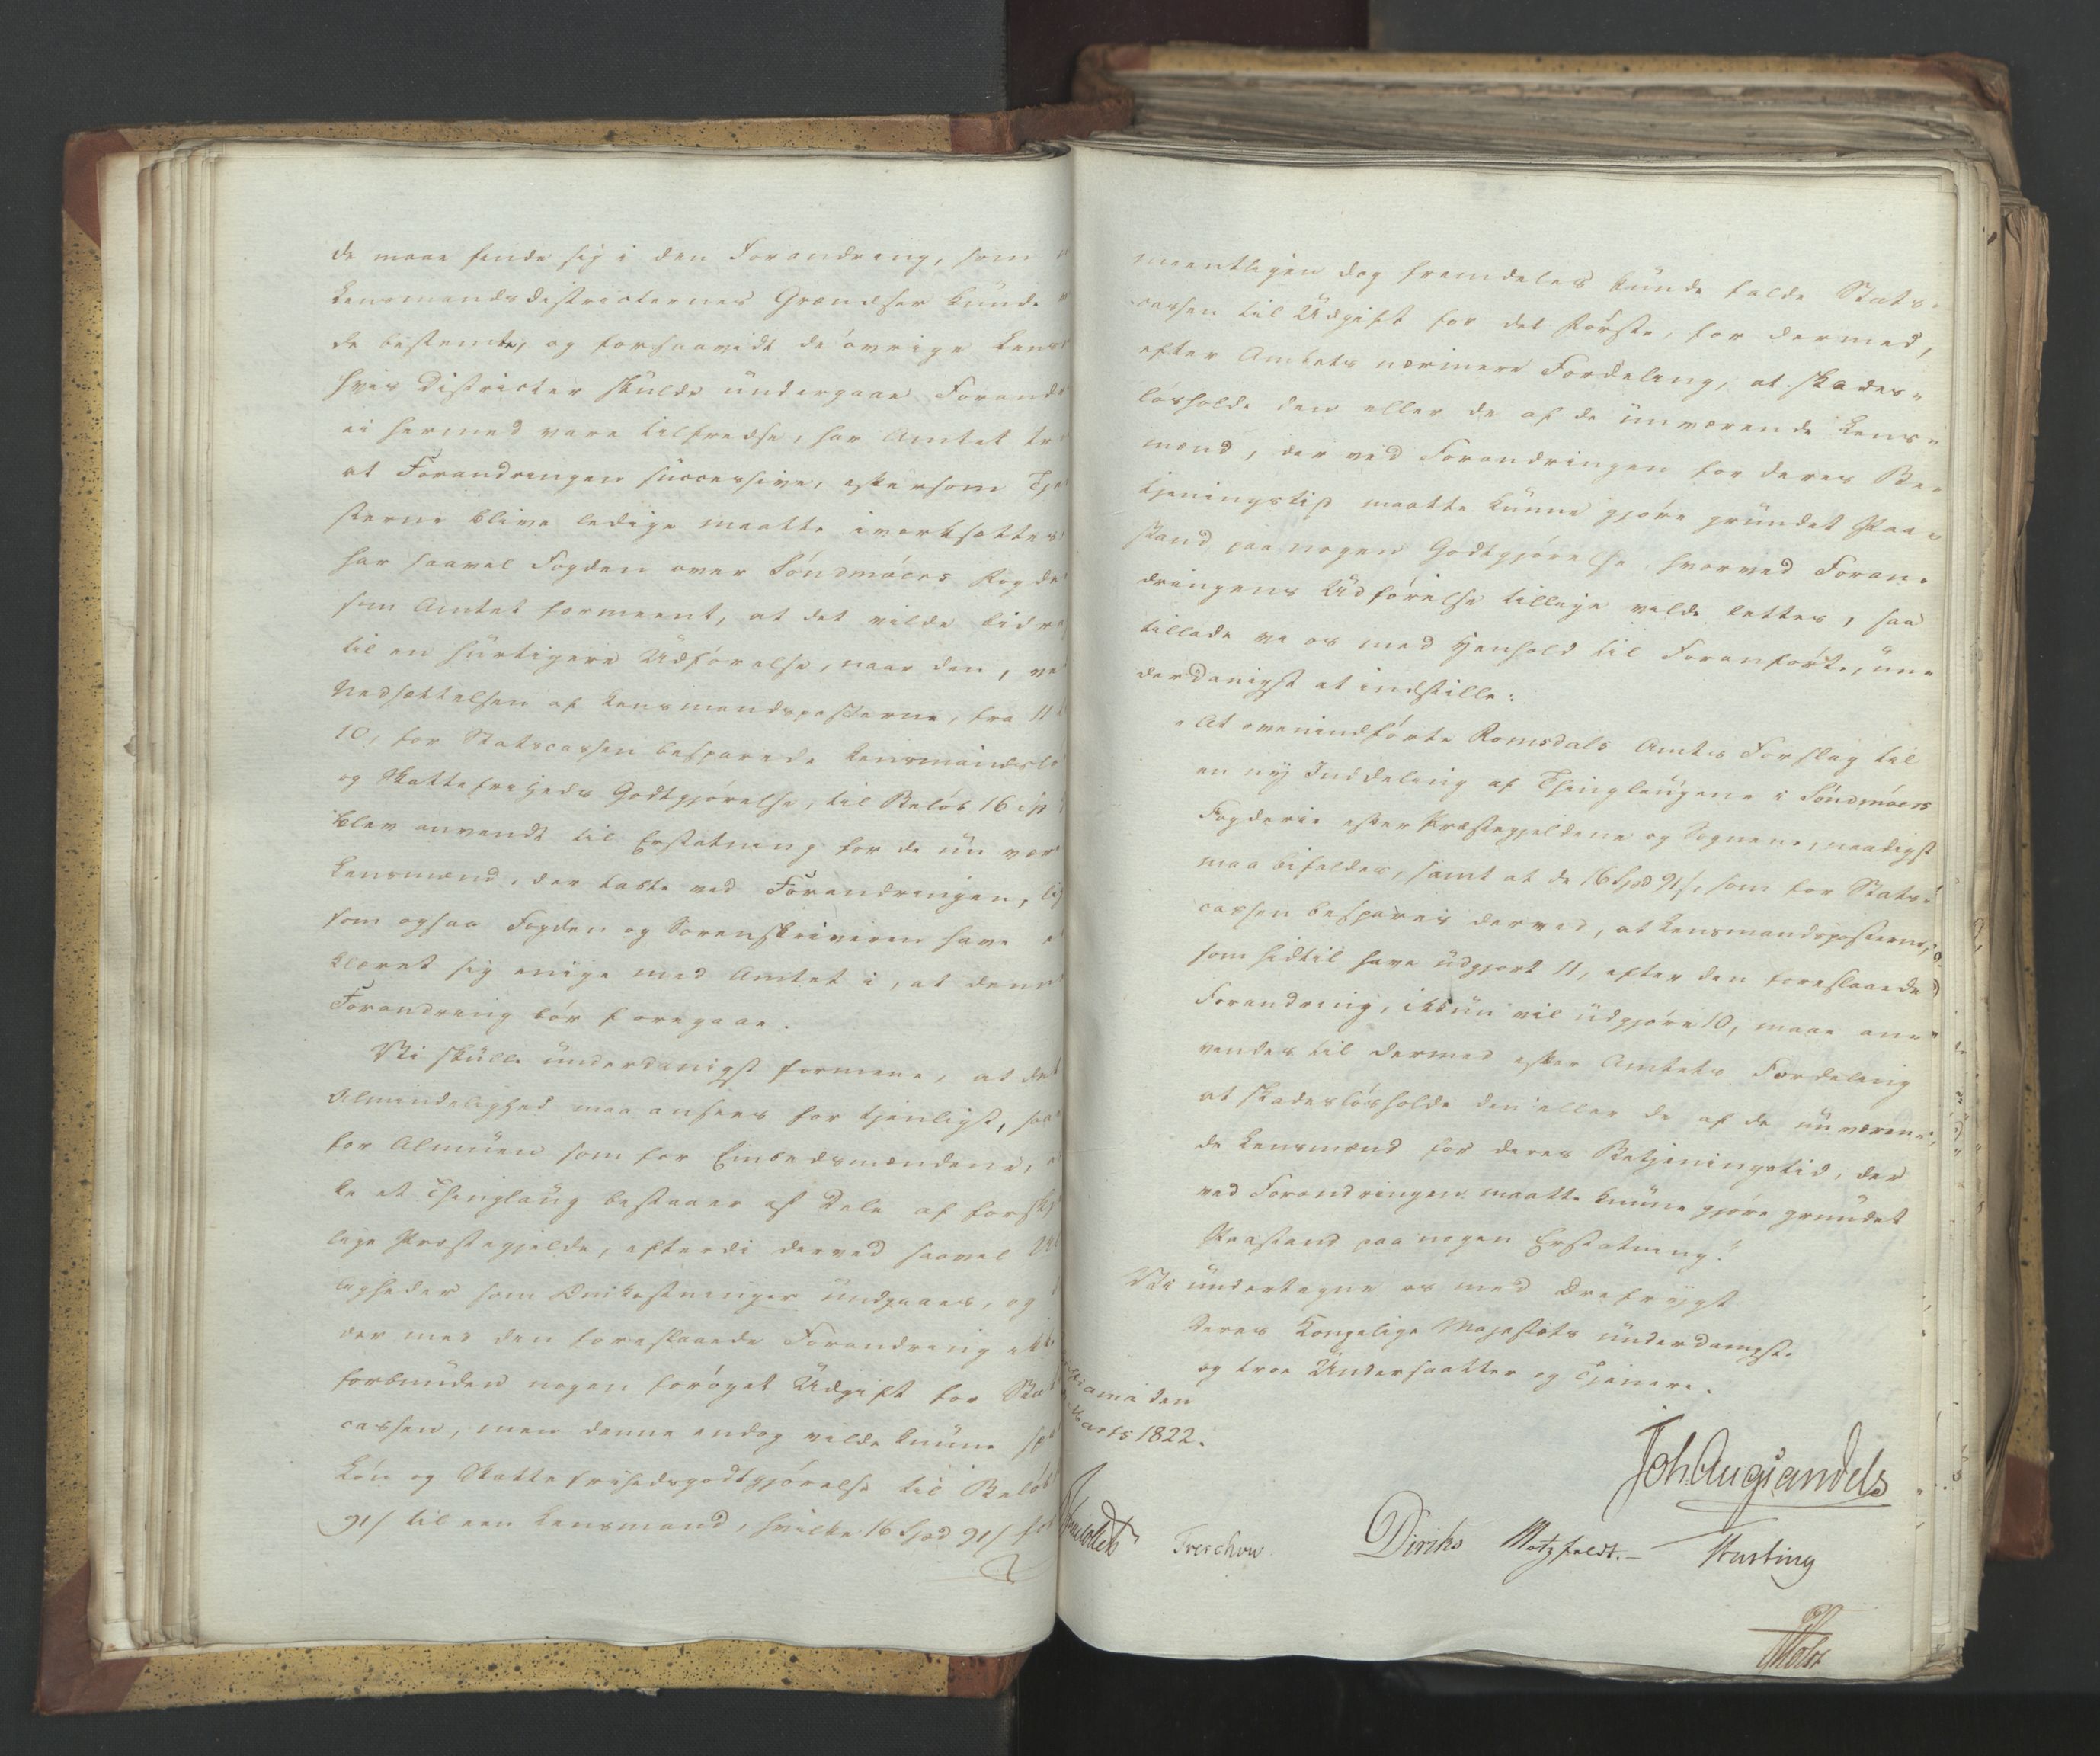 de maae finde sig i den Forandring, som
Lensmandsdistricternes Grændser kunde
de bestemte, og forsaavidt de øvrige Lens
hvis Districter skulde undergaae Forand
ei hermed være tilfredse, har Amtet
at Forandringen successive, eftersom Tje
sterne blive ledige maatte iværksættes
har saavel Fogden over Söndmöers Fogde
som Amtet formeent, at det vilde bidra
til en hurtigere Udförelse, naar den, ve
Nedsættelsen af Lensmandsposterne, fra 11
10, for Statscassen besparede Lensmandslö
og Skattefriheds Godtgjörelse, til Belöb 16
blev anvendt til Erstatning for de nu vær
Lensmænd, der tabte ved Forandringen, lig
som ogsaa Fogden og Sorenskriveren have
klæret sig enige med Amtet i, at denne
Forandring bör foregaae.
Vi skulle underdanigst formene, at det
Almindelighed maa ansees for tjenligst, saa
for Almuen som for Embedsmændene,
ke et Thinglaug bestaaer af Dele af forskj
lige Præstegjelde, efterdi derved saavel
ligheder som Omkostninger undgaaes, og
der med den foreslaaede Forandring ikke
forbunden nogen foröget Udgift for Stats
cassen, men denne endog vilde kunne
Lön og Skattefrihedsgodtgjörelse til Belöb
91/ til een Lensmand, hvilke 16 Spd 91/
meentligen dog fremdeles kunde falde Stats-
cassen til Udgift for det förste, for dermed,
efter Amtets nærmere Fordeling, at skades-
lösholde den eller de af de nuværende Lens-
mænd, der ved Forandringen for deres Be-
tjeningstid maatte kunne gjöre grundet Paa-
stand paa nogen Godtgjörelse, hvorved Foran-
dringens Udförelse tillige vilde lettes, saa
tillade vi os med Henhold til Foranförte, un-
derdanigst at indstille:
"At ovenindförte Romsdals Amts Forslag til
en nÿ Inddeling af Thinglaugene i Söndmöers
Fogderie efter Præstegjeldene og Sognene, naadigst
maa bifaldes, samt at de 16 Spd 91/, som for Stats-
cassen bespares derved, at Lensmandsposterne,
som hidtil have udgjort 11, efter den foreslaaede
Forandring, ikkun vil udgjöre 10, maae an-
vendes til dermed efter Amtets Fordeling
at skadeslösholde den eller de af de nuværen-
de Lensmænd for deres Betjeningstid, der
ved Forandringen maatte kunne gjöre grundet
Paastand paa nogen Erstatning."
Vi undertegne os med Ærefrÿgt
Deres Kongelige Majestæts underdanigste
og troe Undersaatter og Tjenere.
iania den
Marts 1822.
Joh. Aug. Sandels
Collett Treschow Diriks Motzfeldt.- Fasting
Holst